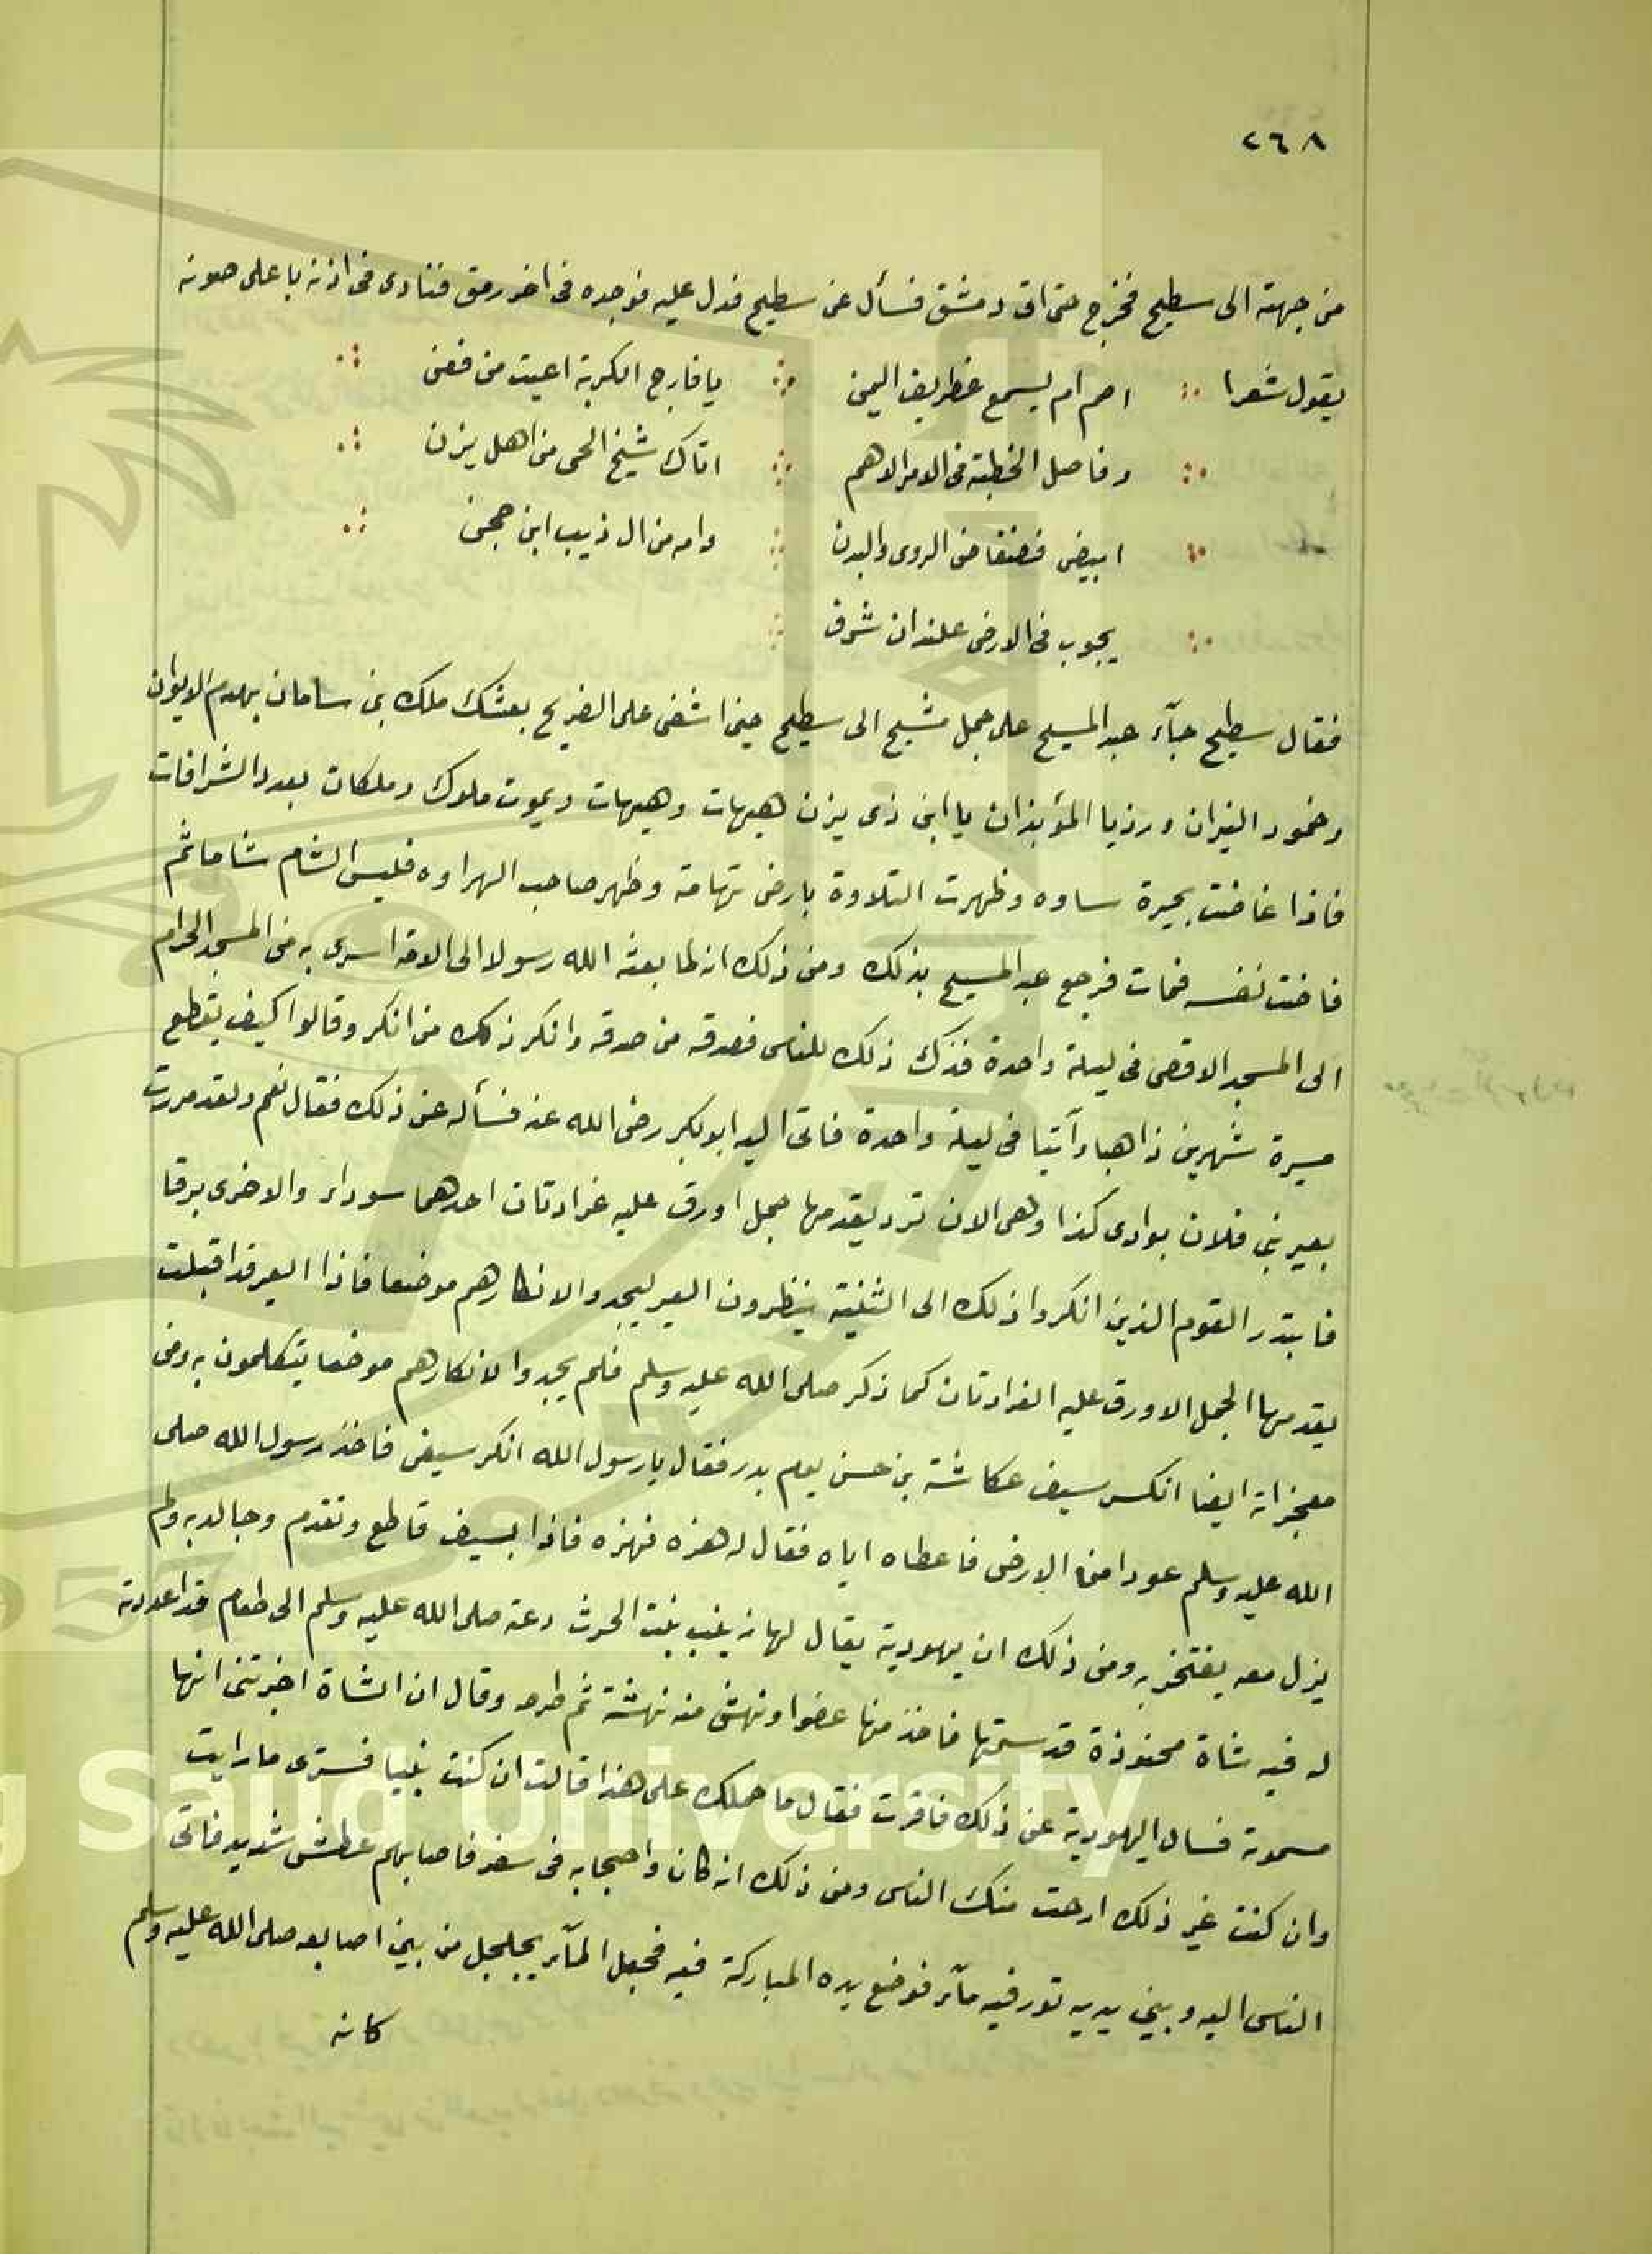 ٢٦٨
من جهته الى سطيح فخرج حتى اتى دمشق فسأل عن سطيح فدل عليه فوجده فى اخر رمق فنادى فى اذنه باعلى صوته
يقول شعرا اصم ام يسمع غطريف اليمن يا فارج الكربة اعيت من فض
وفاصل الخطبة فى الامر الاهم اتاك شيخ الحى من اهل يزن
ابيض فضفاض الردى والبدن وامه من ال ذيب ابن حجن
يجوب فى الارض علندان شرق
فقال سطيح جآء عبد المسيح على جمل مشيح الى سطيح حين اشفى على الضريح بعثك ملك بنى ساسان بهدم الايوان
وخمود النيران ورؤيا المؤبذان يا ابن ذى يزن هيهات وهيهات ويموت ملوك وملكات بعدد الشرافات
فاذا غاضت بحيرة ساوه وظهرت التلاوة بارض تهامة وظهر صاحب الهراوه فليس الشام شاما ثم
فاضت نفسه فمات فرجع عبد المسيح بذلك ومن ذلك انه لما بعثه الله رسولا الى الامة اسرى به من المسجد الحرام
الى المسجد الاقصى فى ليلة واحدة فذكر ذلك للناس فصدقه من صدقه وانكر ذلك من انكر وقالوا كيف يقطع
مسيرة شهرين ذاهبا وآتيا فى ليلة واحدة فاتى اليه ابو بكر رضى الله عنه فسأله عن ذلك فقال نعم ولقد مررت
بعير بنى فلان بوادى كذا وهى الان ترد يقدمها جمل اورق عليه غرارتان احدهما سوداء والاخرى برقا
فابتدر القوم الذين انكروا ذلك الى الثنية ينظرون العير ليجدوا لانكارهم موضعا فاذا العير قد اقبلت
يقدمها الجمل الاورق عليه الغرارتان كما ذكر صلى الله عليه وسلم فلم يجدوا لانكارهم موضعا يتكلمون به ومن
معجزاته ايضا انكسر سيف عكاشة بن حسن يوم بدر فقال يا رسول الله انكسر سيفى فاخذ رسول الله صلى
الله عليه وسلم عودا من الارض فاعطاه اياه فقال له هزه فهزه فاذا بسيف قاطع وتقدم وجالد به ولم
يزل معه يفتخر به ومن ذلك ان يهودية يقال لها زينب بنت الحرث دعته صلى الله عليه وسلم الى طعام قد اعددته
له فيه شاة محنوذة قد سمتها فاخذ منها عضوا ونهش منه نهشة ثم طرحه وقال ان الشاة اخبرتنى انها
مسمومة فسال اليهودية عن ذلك فاقرت فقال ما حملك على هذا قالت ان كنت نبيا فسترى ما رايت
وان كنت غير ذلك ارحت منك الناس ومن ذلك انه كان واصحابه فى سفر فاصابهم عطش شديد فاتى
الناس اليه وبين يديه تور فيه مآء فوضع يده المباركة فيه فجعل المآء يجلجل من بين اصابعه صلى الله عليه وسلم
كانه
King Saud University
1957